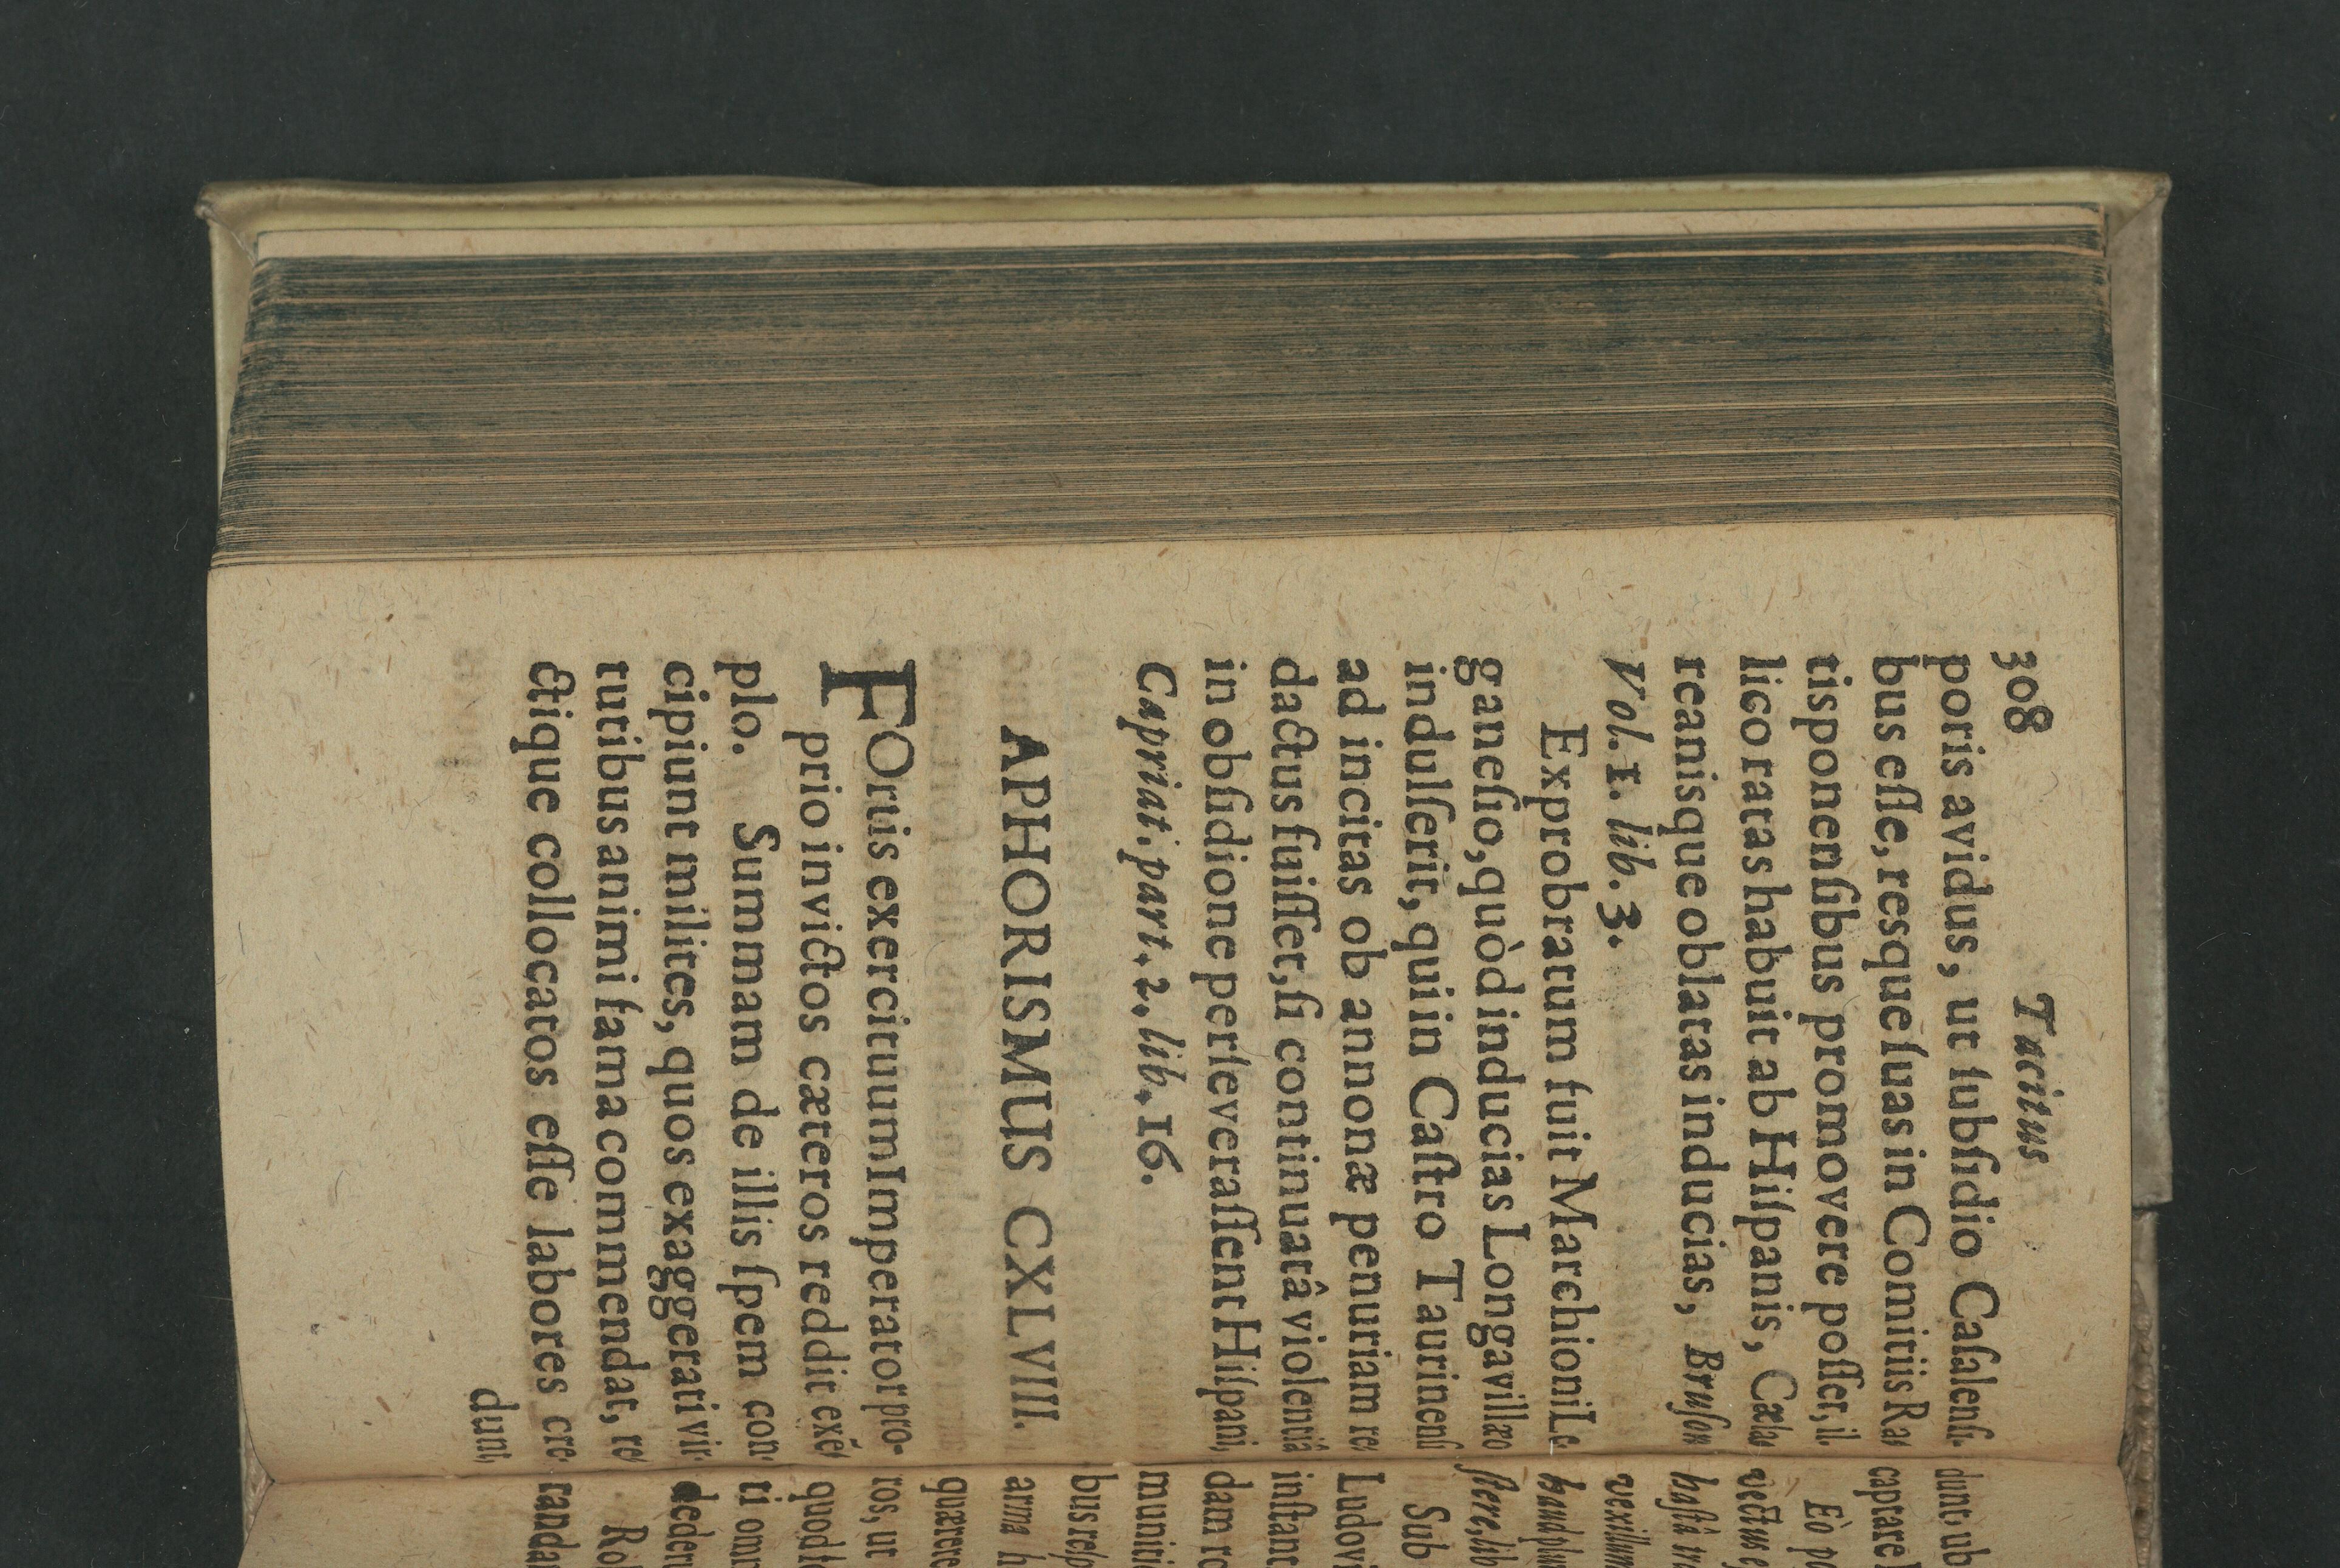 308 Tacitus
poris avidus, ut ſubſidio Caſalenſi-
bus eſſe, resque ſuas in Comitiis Ra-
tisponenſibus promovere poſſet, il-
lico ratas habuit ab Hiſpanis, Cæſa-
reanisque oblatas inducias, Bruſon
Vol. 1. lib. 3.
Exprobratum fuit Marchioni Le-
ganeſio, quòd inducias Longavillæo
indulſerit, qui in Caſtro Taurinenſi
ad incitas ob annonæ penuriam re-
dactus fuiſſet, ſi continuatâ violentiâ
in obſidione perſeveraſſent Hiſpani,
Capriat. part. 2. lib. 16.
APHORISMUS CXLVIII.
FOrtis exercituum Imperator pro-
prio invictos cæteros reddit exē-
plo. Summam de illis ſpem con-
cipiunt milites, quos exaggerati vir-
tutibus animi fama commendat, re-
ctique collocatos eſſe labores cre-
dunt,
dunt, ub
captare
Eò
vectus
haſtâ
vexillum
haud
ſtere, lib
Sub
Ludovi
inſtanc
dam
muniti
bus reſp
arma h
quærere
ros, ut
quod
ti omn
deder
Ro
randa